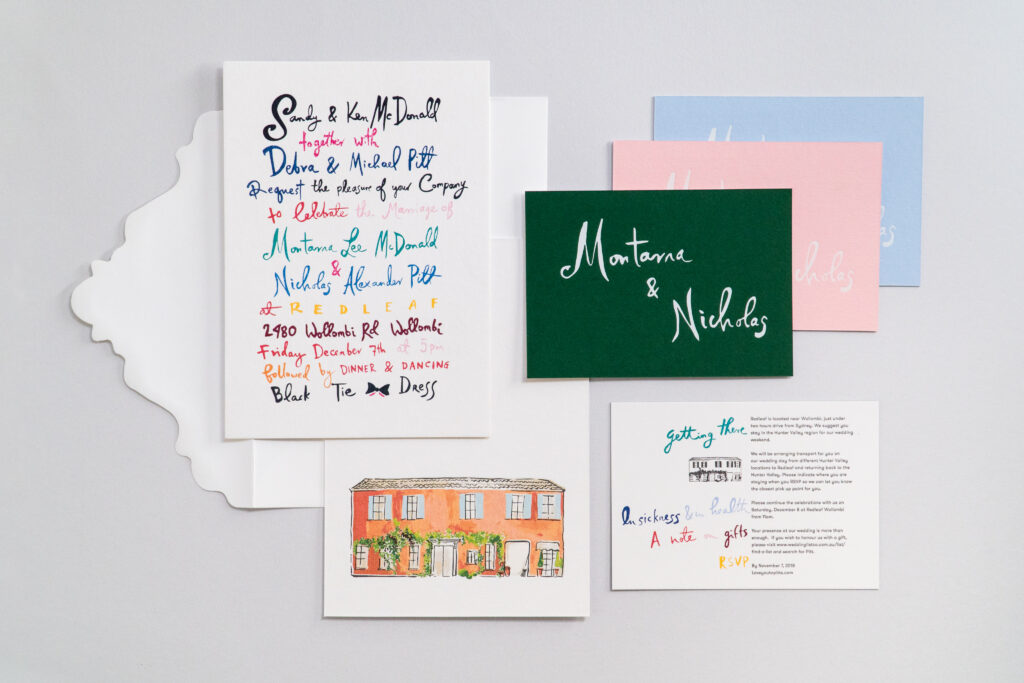 Sandy & Ken McDonald
together with
Debra & Michael Pitt
Request the pleasure of your Company
to Celebrate the Marriage of
Montarna Lee McDonald
&
Nicholas Alexander Pitt
at REDLEAF
2980 Wollombi Rd Wollombi
Friday December 7th at 5pm
followed by DINNER & DANCING
Black Tie Dress
Montarna
&
Nicholas
getting there
Redleaf is located near Wollombi, just under
two hours drive from Sydney. We suggest you
stay in the Hunter Valley region for our wedding
weekend.
We will be arranging transport for you on
our wedding day from different Hunter Valley
locations to Redleaf and returning back to the
Hunter Valley. Please indicate where you are
staying when you RSVP so we can let you know
the closest pick up point for you.
In sickness & in health
Please continue the celebrations with us on
Saturday, December 8 at Redleaf Wollombi
from 11am.
A note on gifts
Your presence at our wedding is more than
enough. If you wish to honour us with a gift,
please visit www.weddinglistco.com.au/list/
find-a-list and search for Pitt.
RSVP
By November 1, 2018